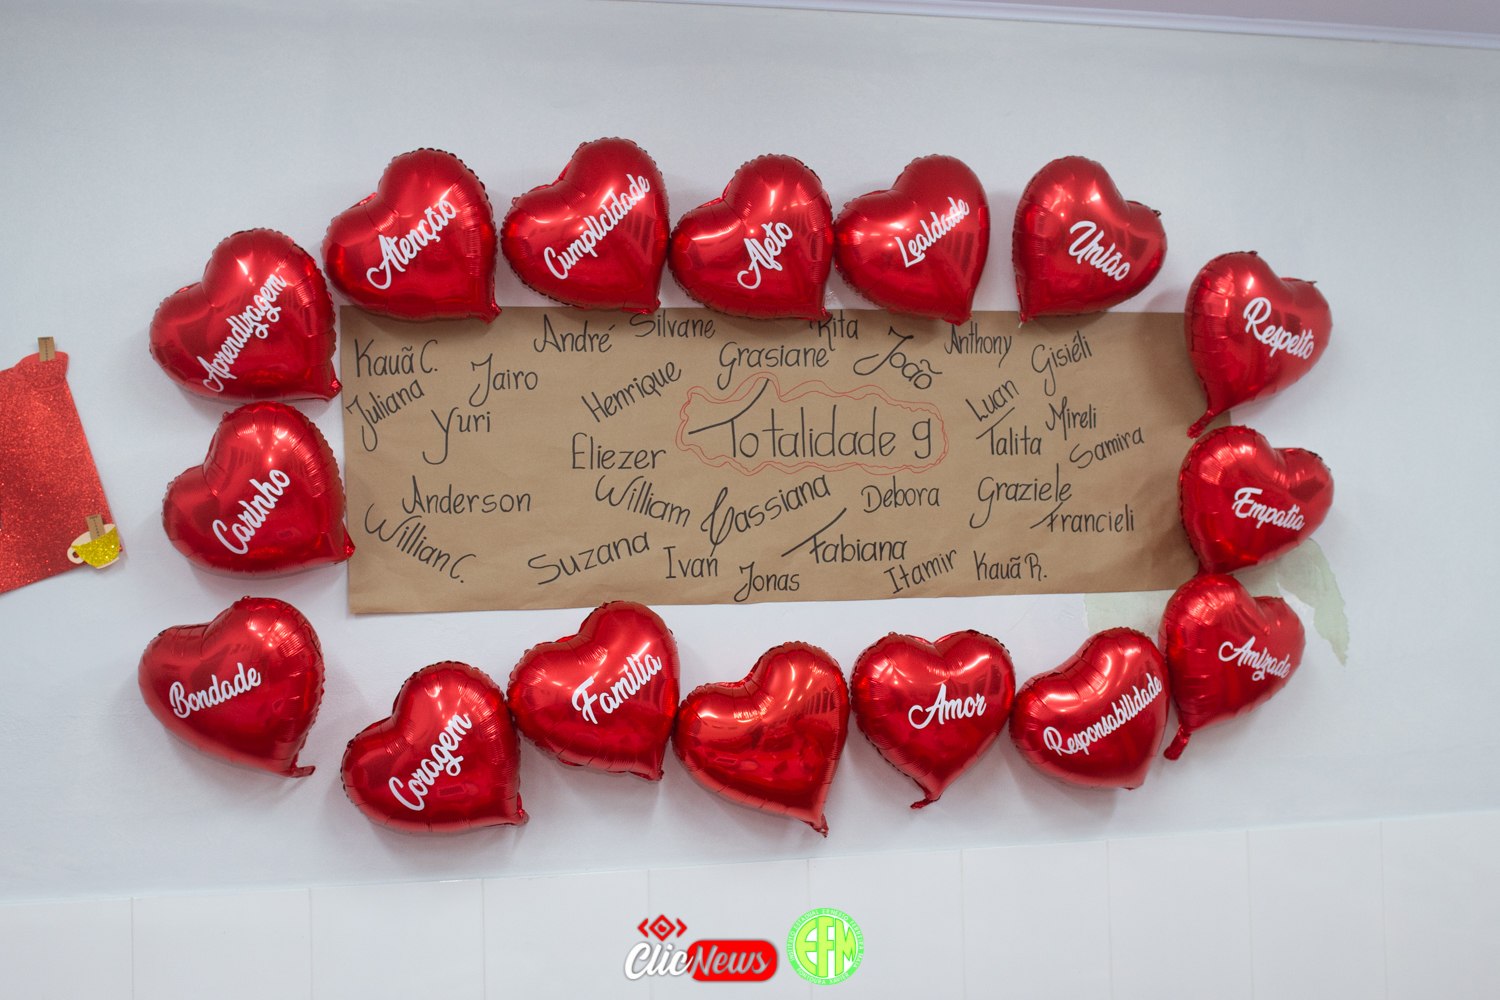 Aprendizagem
Atenção
Cumplicidade
Afeto
Lealdade
União
Respeito
Carinho
Empatia
Bondade
Coragem
Família
Amor
Responsabilidade
Amizade
Kauã C.
André
Silvane
Rita
Anthony
Juliana
Jairo
Henrique
Grasiane
João
Gisiéli
Yuri
Totalidade 9
Luan
Mireli
Eliezer
Talita
Samira
Anderson
William
Cassiana
Debora
Graziele
Francieli
Willian C.
Suzana
Ivan
Jonas
Fabiana
Itamir
Kauã R.
ClicNews
EFM